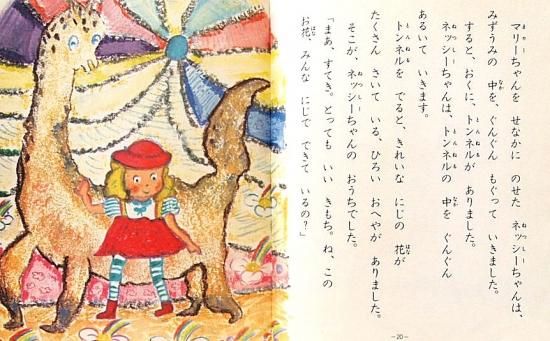 マリーちゃんを せなかに のせた ネッシーちゃんは、
みずうみの 中を、ぐんぐん もぐって いきました。
すると、おくに、トンネルが ありました。
ネッシーちゃんは、トンネルの 中を ぐんぐん
あるいて いきます。
トンネルを でると、きれいな にじの 花が
たくさん さいて いる、ひろい おへやが ありました。
そこが、ネッシーちゃんの おうちでした。
「まあ、すてき。とっても いい きもち。ね、この
お花、みんな にじで できて いるの？」
―20―